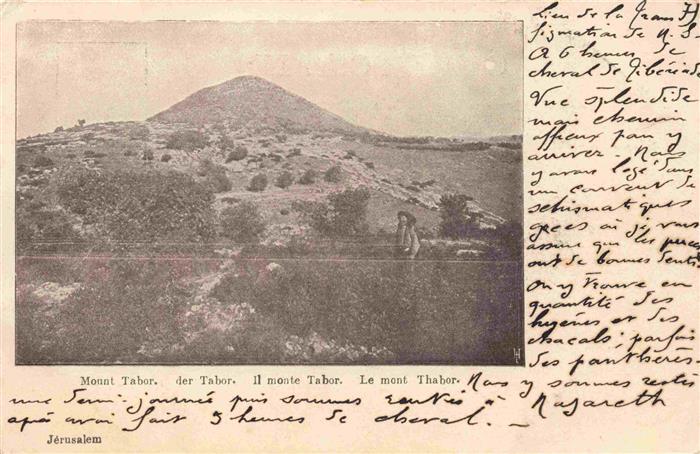 lieu de la Trans
figuration de N. S.
A 6 heures de
cheval de Tibériade
Vue splendide
mais chemin
affreux pour y
arriver. Nous
y avons logé dans
un couvent de
schismatiques
grecs où je vous
assure que les puces
ont de bonnes dents.
On y trouve en
quantité des
hyènes et des
chacals; parfois
des panthères.
Mount Tabor. der Tabor. Il monte Tabor. Le mont Thabor.
Nous y sommes restés
une demi-journée puis sommes rentrés à Nazareth
après avoir fait 5 heures de cheval.
Jérusalem